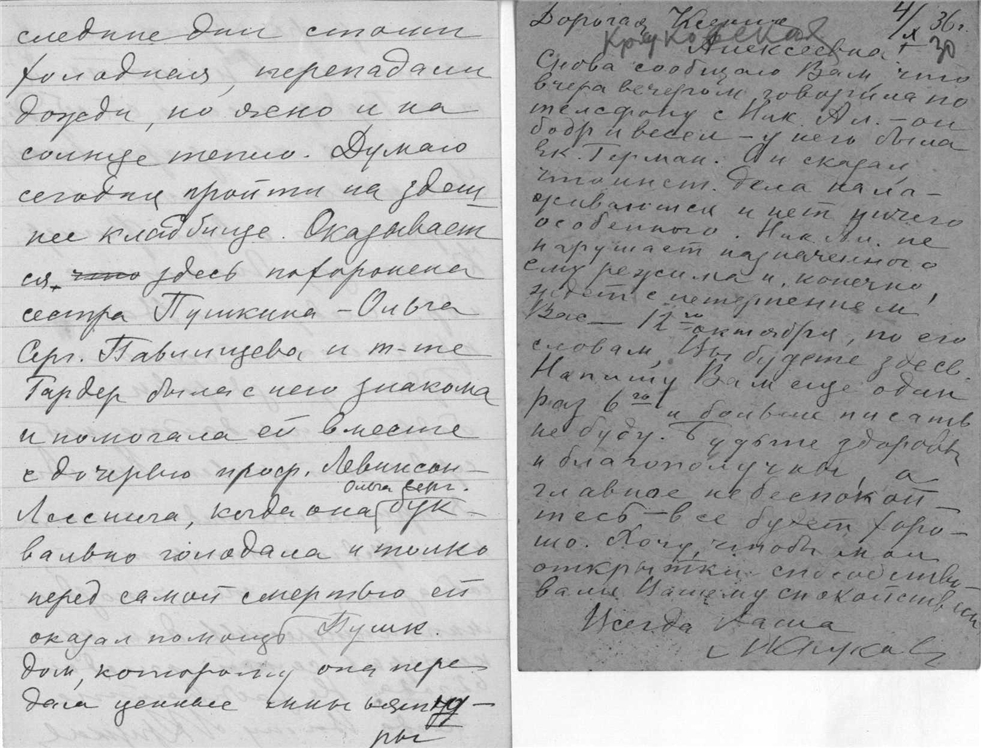 следние дни стоит
холодная, перепадали
дожди, но ясно и на
солнце тепло. Думаю
сегодня пройти на здеш
нее кладбище. Оказывает
ся, что здесь похоронена
сестра Пушкина – Ольга
Серг. Павлищева и m-me
Гардер была с нею знакома
и помогала ей вместе
с дочерью проф. Левинсон-
Лессинга, когда она Ольга Серг. бук-
вально голодала и только
перед самой смертью ей
оказал помощь Пушк.
дом, которому она пере
дала ценные миньятю-
ры
Дорогая Ксения 4/X 36 г.
Крюковская 30
Алексеевна
Снова сообщаю Вам, что
вчера вечером говорила по
телефону с Ник. Ал. – он
бодр и весел – у него была
Ек. Герман. Он сказал
что инст. дела нала-
живаются и нет ничего
особенного. Ник. Ал. не
нарушает назначенного
ему режима и, конечно,
ждет с нетерпением
Вас – 12го октября, по его
словам, Вы будете здесь.
Напишу Вам еще один
раз 6го и больше писать
не буду. Будьте здоровы
и благополучны, а
главное не беспокой
тесь – все будет хоро-
шо. Хочу, чтобы мои
открытки способствo-
вали Вашему спокойствию
Всегда Ваша